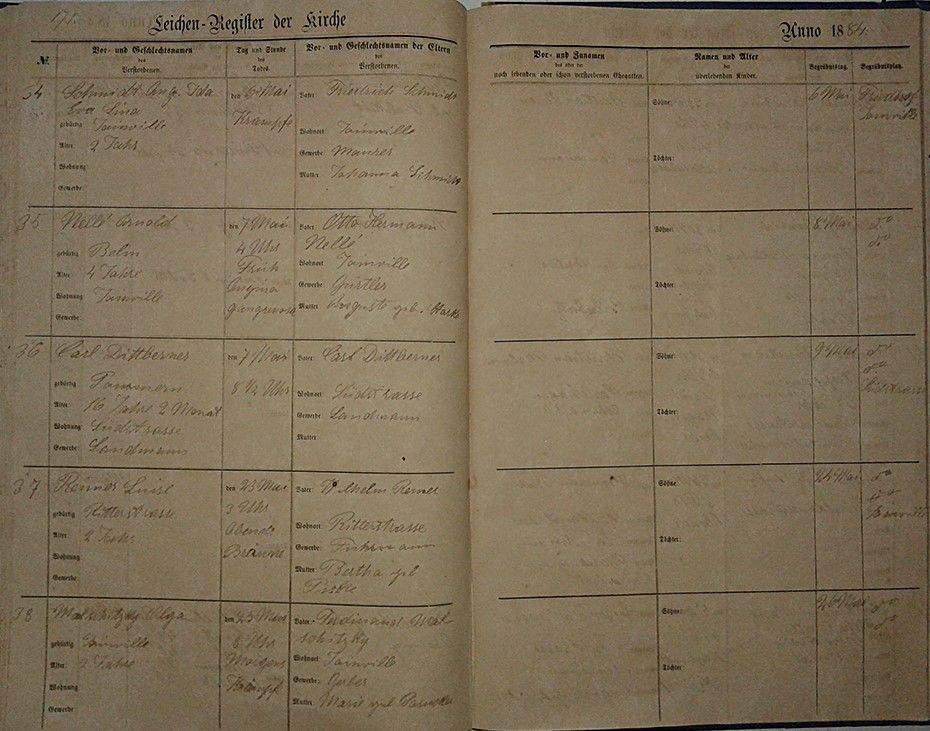 Leichen-Register der Kirche
Anno 1884.
№.
Vor- und Geschlechtsnamen
des
Verstorbenen.
Tag und Stunde
des
Todes.
Vor- und Geschlechtsnamen der Eltern
des
Verstorbenen.
Vor- und Zunamen
des oder der
noch lebenden oder schon verstorbenen Ehegatten.
Namen und Alter
der
überlebenden Kinder.
Begräbnißtag.
Begräbnißplatz.
34
Schmidt Aug. Ida
Eva Lina
gebürtig Joinville
Alter 2 Jahr
Wohnung
Gewerbe
den 6 Mai
Krämpfe
Vater Friedrich Schmidt
Wohnort Joinville
Gewerbe Maurer
Mutter Johanna Schmidt
Söhne:
Töchter:
6 Mai
Friedhof
Joinville
35
Nellé Arnold
gebürtig
Alter 4 Jahre
Wohnung Joinville
Gewerbe
den 7 Mai
4 Uhr
Früh
Angina
gangrenosa
Vater Otto Hermann
Nellé
Wohnort Joinville
Gewerbe Gürtler
Mutter Auguste geb. Stark
Söhne:
Töchter:
8 Mai
do
do
36
Carl Dittberner
gebürtig Pommern
Alter 16 Jahre 2 Monat
Wohnung Südstrasse
Gewerbe Landmann
den 7 Mai
8 ½ Uhr
Vater Carl Dittberner
Wohnort Südstrasse
Gewerbe Landmann
Mutter
Söhne:
Töchter:
9 Mai
do
do
Südstrasse
37
Luise
gebürtig Ritterstrasse
Alter 2 Jahr
Wohnung
Gewerbe
den 23 Mai
3 Uhr
Abends
Bräune
Vater Wilhelm
Wohnort Ritterstrasse
Gewerbe: Fuhrmann
Mutter Bertha geb
Söhne
Töchter:
24 Mai
do
do
Joinville
38
Olga
gebürtig Joinville
Alter 2 Jahre
Wohnung
Gewerbe
den 25 Mai
8 Uhr
Morgens
Krämpf
Vater Ferdinand
Wohnort Joinville
Gewerbe: Gerber
Mutter Marie geb
Söhne:
Töchter:
26 Mai
do
do